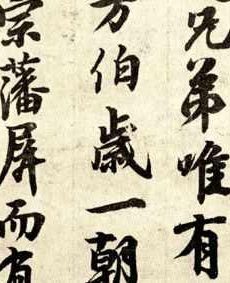 兄弟唯有
方伯歲一朝
崇藩屏而有